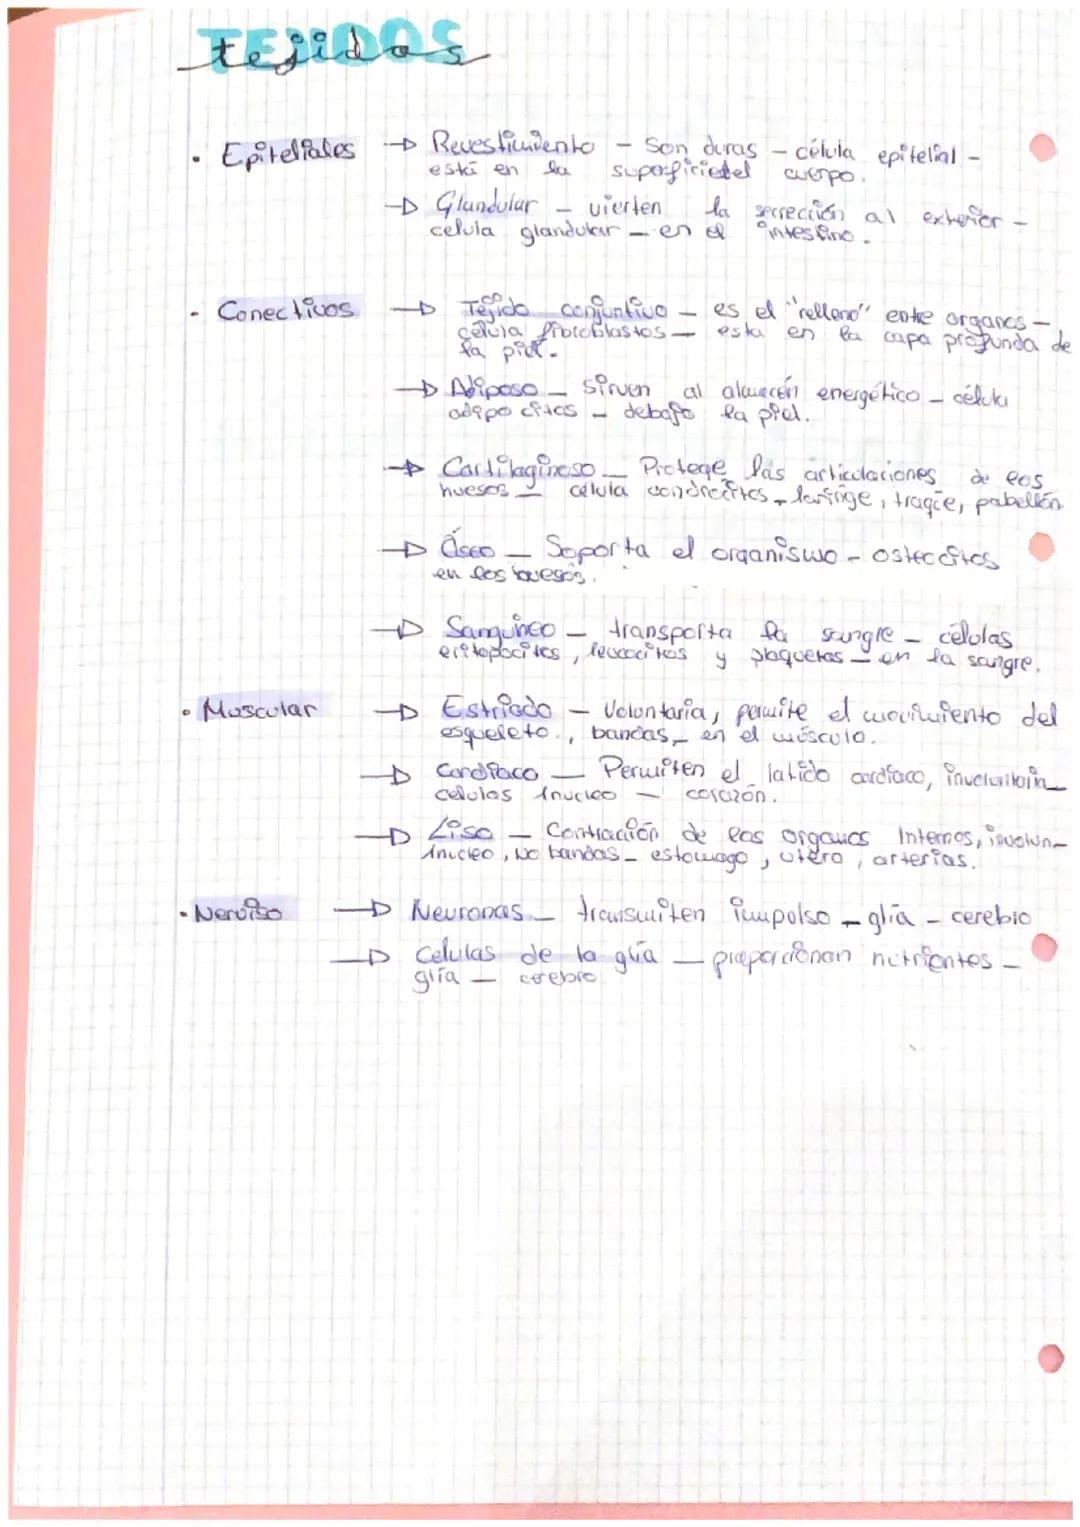 TEJIDOS
tejidos
· Epiteliales → Revestimiento - Son duras - célula epitelial -
está en la superficie del cuerpo.
→ Glandular - vierten la secreción al exterior -
celula glandular - en el intestino.
· Conectivos → Tejido conjuntivo - es el "relleno" entre organos -
célula fibroblastos - esta en la capa profunda de
la piel.
→ Adiposo - sirven al almacén energético - célula
adipocitos - debajo la piel.
→ Cartilaginoso - Protege las articulaciones de los
huesos - célula condrocitos - laringe, tragie, pabellón
→ Óseo - Soporta el organismo - osteocitos
en los huesos.
→ Sanguíneo - transporta la sangre - células
eritopocitos, leucocitos y plaquetas - en la sangre.
· Muscular → Estriado - Voluntaria, permite el movimiento del
esqueleto., bandas, - en el músculo.
→ Cardiaco - Permiten el latido cardiaco,
celulas 1nucleo - corazón.
→ Liso - Contracción de los organos Internos, involun-
1nucleo, No bandas - estomago, utero, arterias.
· Nerviso → Neuronas - transmiten impulso - glía - cerebro
→ Celulas de la glía - proporcionan nutrientes -
glía - cerebro